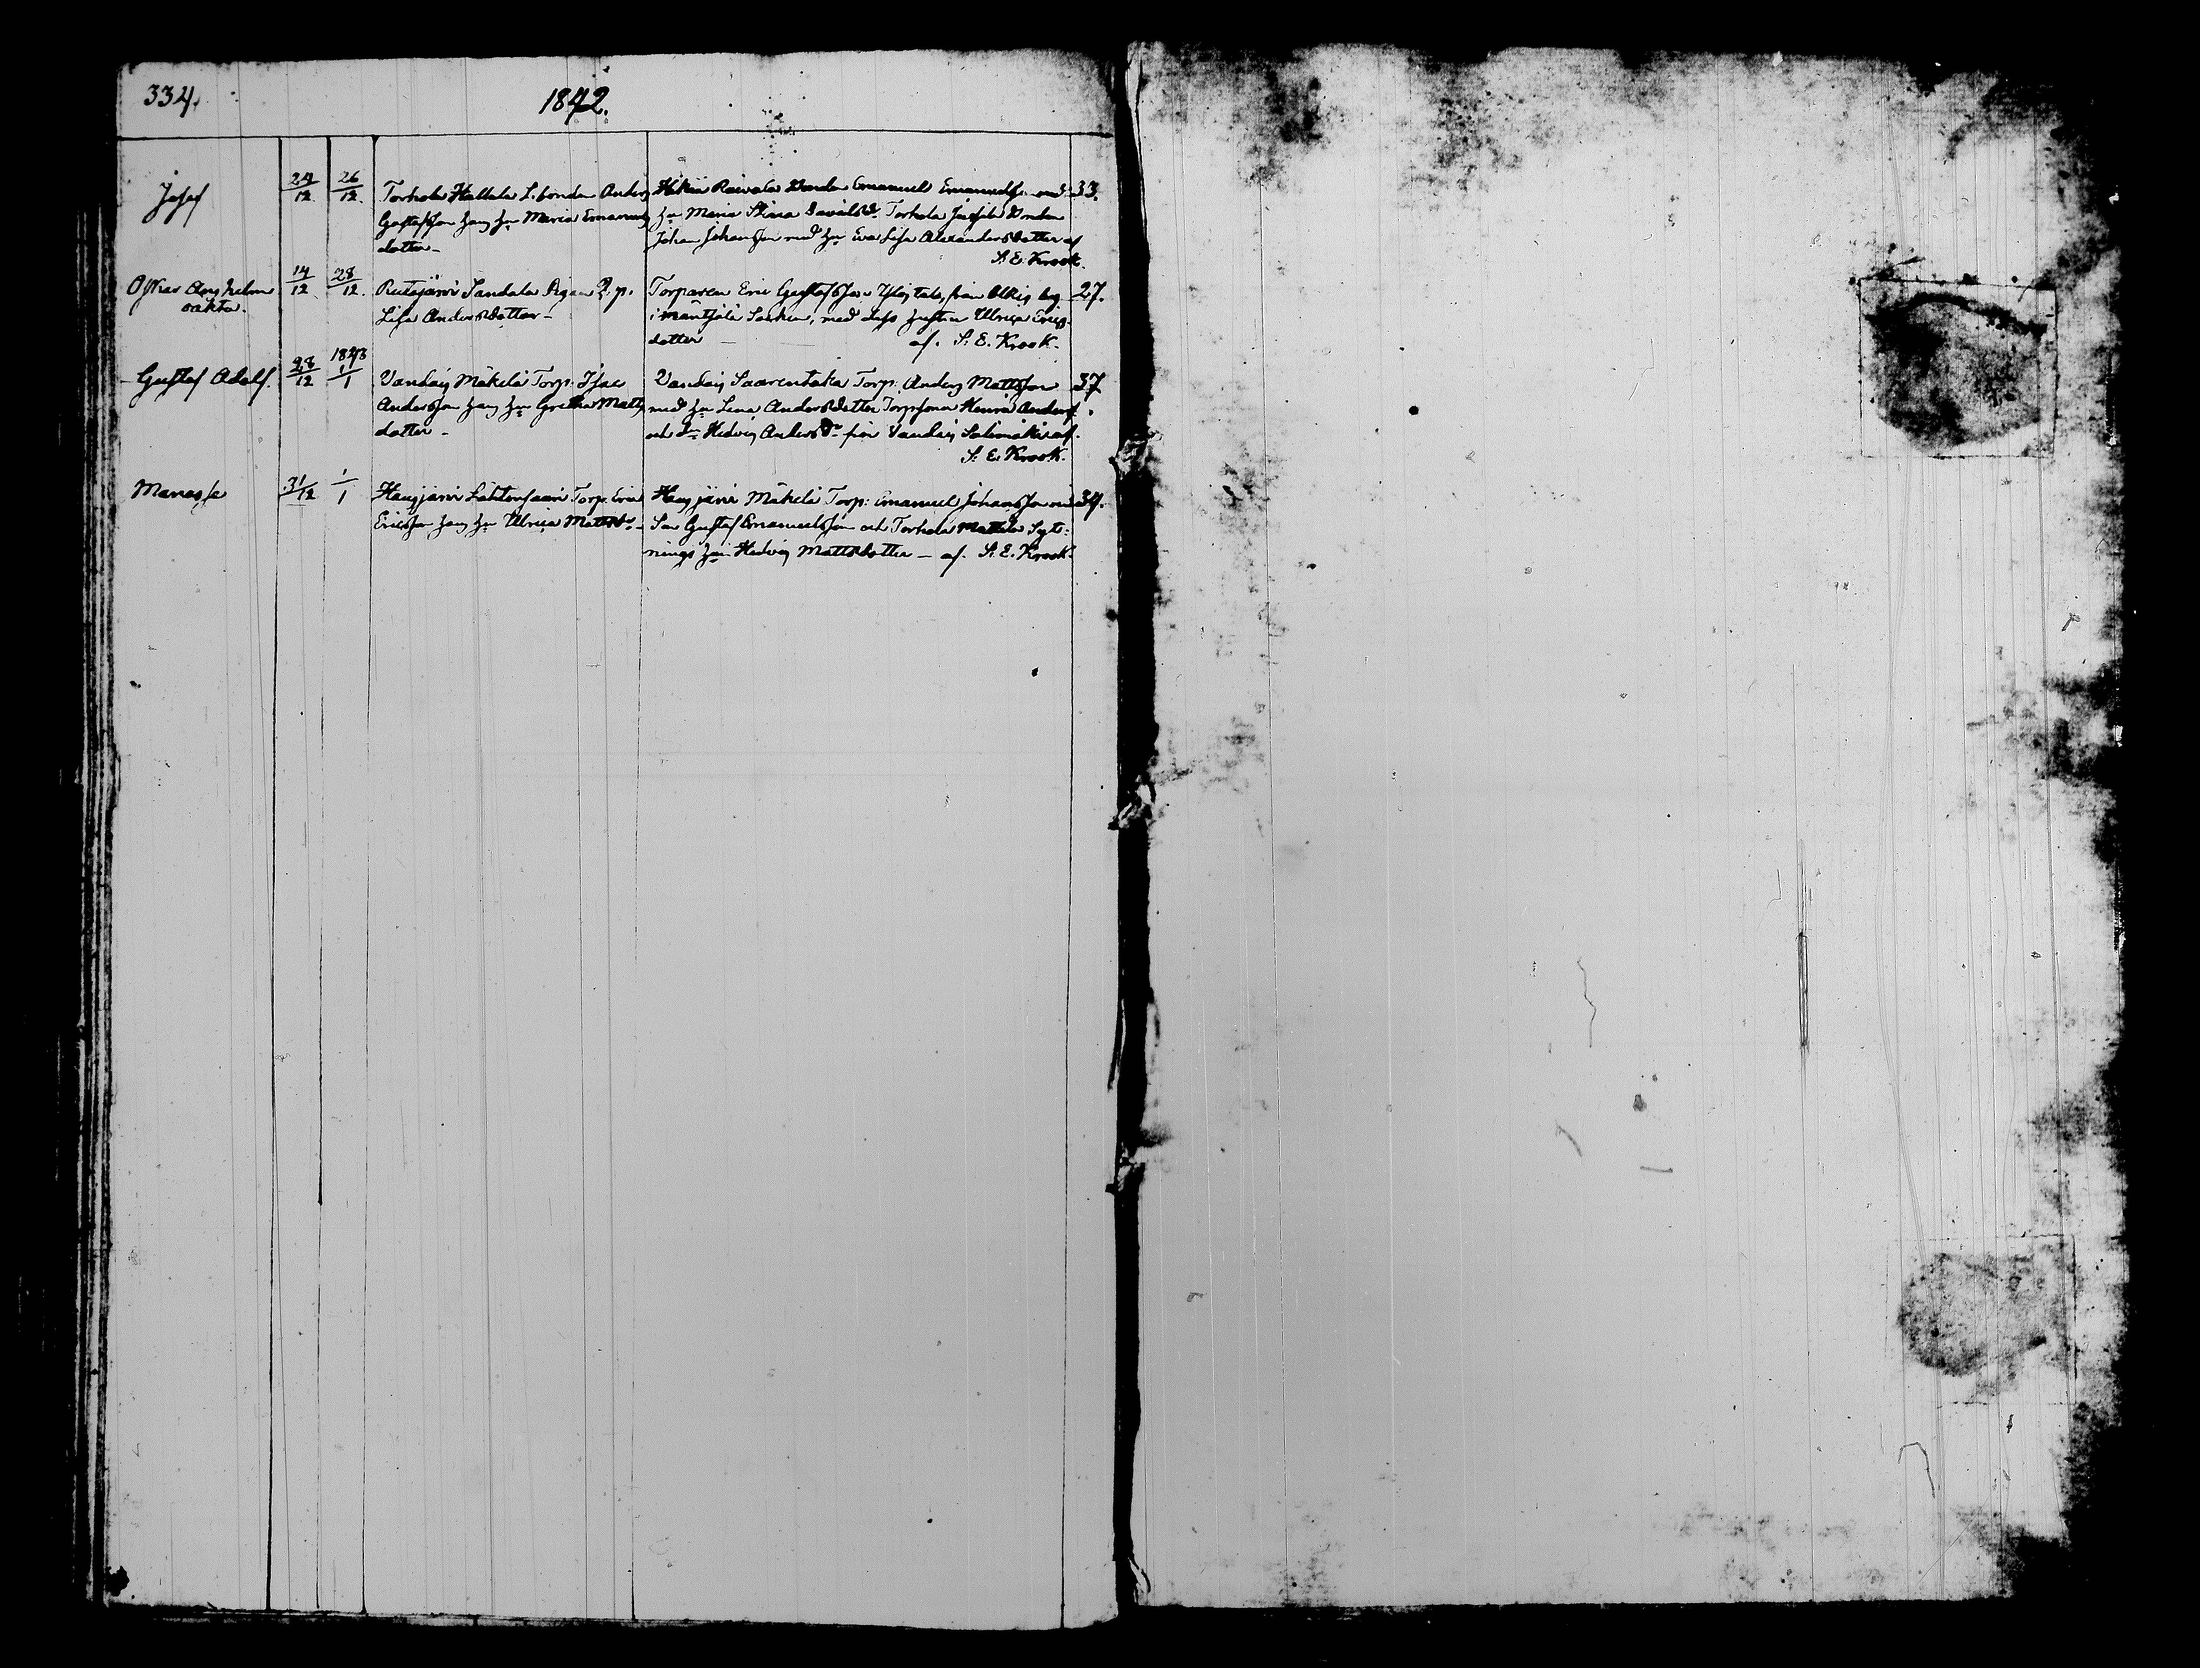 334.
1842.
Josef
24/12
26/12
Torhola Hallala L. bonden Anders
Gustafsson hans hu Maria Emanuels
dotter
Hikiä Raivala Bonden Emanuel Emanuelss. med
hu Maria Stina Davidsdr Torhola Bonden
Johan Johansson med hu Eva Lisa Alexandersdotter af
S. E. Krook.
33.
Oskar Wilhelm
oäkta.
14/12
28/12
Rutajärvi Sandala Pigan
Lisa Andersdotter
Torparen Eric Gustafsson från
Socken, med dess hustru Ulrica Erics
dotter af. S. E. Krook.
27.
Gustaf Adolf.
28/12
1843
1/1
Vandais Mäkelä Torp. Isac
Andersson hans hu Gretha Matts
dotter
Vandais Saarentaka Torp. Anders Mattsson
med hu Lena Andersdotter Henric Anderss.
och Hedvig Andersdr från Vandais Salomäki af.
S. E. Krook.
37.
Manasse
31/12
1/1
Haujärvi Lahtensaari Torp. Eric
Ericsson hans hu Ulrica Mattsdr
Haujärvi Mäkelä Torp. Emanuel Johansson med
Son Gustaf Emanuelsson och Torhola Mattila Syt-
nings Hedvig Mattsdotter af. S. E. Krook.
34.